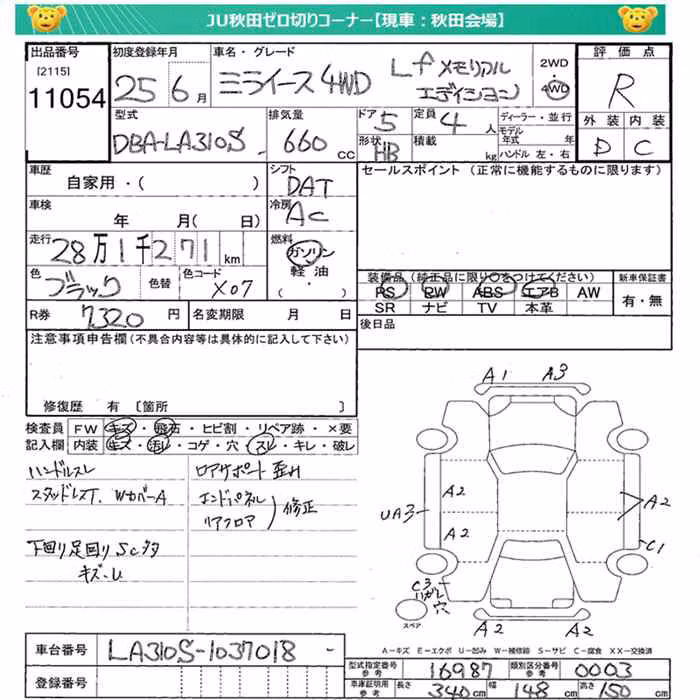 JU秋田ゼロ切りコーナー【現車：秋田会場】
出品番号 初度登録年月 車名・グレード 2WD 評価点
[2115] 11054 25年6月 ミライース 4WD Lf メモリアル エディション 4WD R
型式 排気量 ドア 定員 ディーラー・並行 外装 内装
DBA-LA310S 660cc 5 4人 モデル年式 年 D C
形状 HB 積載 kg ハンドル 左・右
車歴 シフト セールスポイント（正常に機能するものに限ります）
自家用・（ ） DAT
車検 冷房
年 月（ 日） AC
走行 燃料
28万1千271km ガソリン
軽油
・（ ）
色 色替 色コード 装備品（純正品に限り○をつけてください） 新車保証書
ブラック X07 PS PW ABS エアB AW 有・無
SR ナビ TV 本革
R券 7320円 名変期限 月 日 後日品
注意事項申告欄（不具合内容等は具体的に記入して下さい）
修復歴 有 [箇所 ]
検査員 FW キズ・飛石・ヒビ割・リペア跡・×要
記入欄 内装 キズ・汚レ・コゲ・穴・スレ・キレ・破レ
ハンドルスレ ロアサポート歪み
スタッドレスT. WカバーA エンドパネル
リアフロア 修正
下回り足回りSCブタ
キズ-U
A1 A3
A2 A2
UA3 A2
C1
C3 ハガレ 穴
スペア
A2 A2
A-キズ E-エクボ U-凹み W-補修跡 S-サビ C-腐食 XX-交換済
車台番号 LA310S-1037018 -
登録番号
型式指定番号 参考 16987 類別区分番号 参考 0003
車庫証明用 参考 長さ 340cm 幅 148cm 高さ 150cm